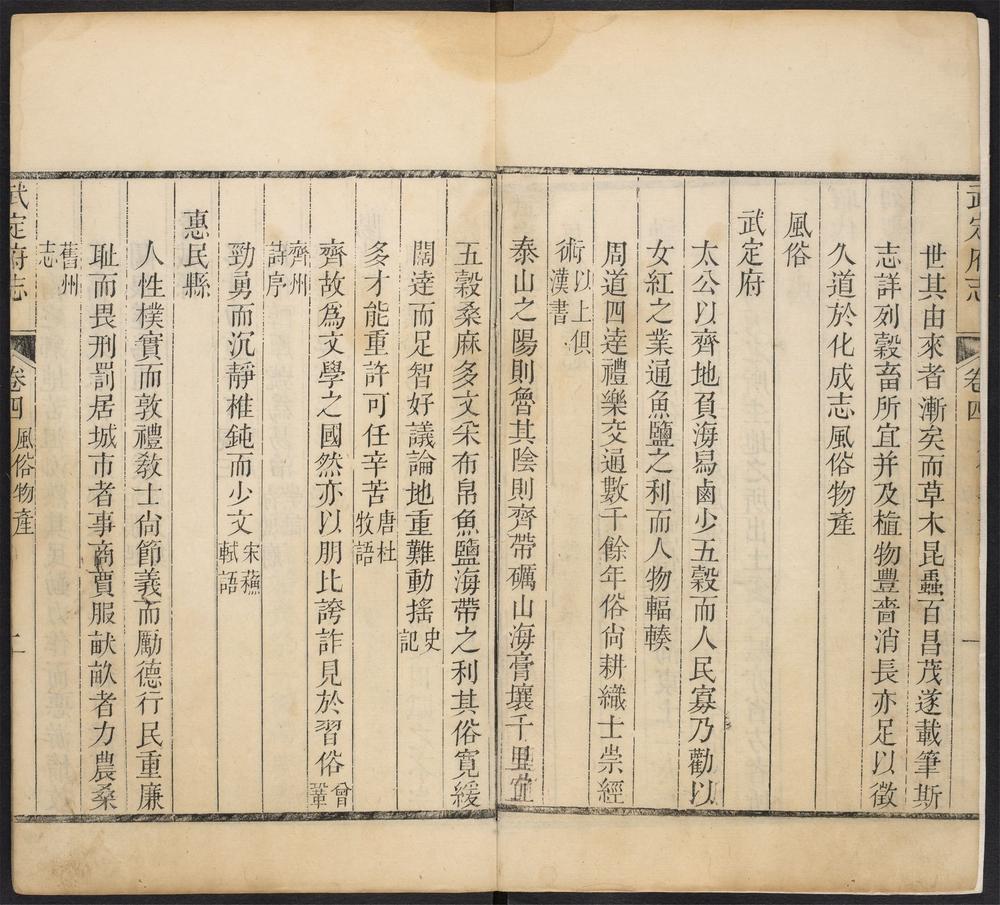 武定府志
卷四
一
世其由來者漸矣而草木昆蟲百昌茂遂載筆斯
志詳列穀畜所宜并及植物豐嗇消長亦足以徵
久道於化成志風俗物產
風俗
武定府
太公以齊地負海舄鹵少五穀而人民寡乃勸以
女紅之業通魚鹽之利而人物輻輳
周道四達禮樂交通數千餘年俗尙耕織士崇經
術以上俱漢書
泰山之陽則魯其陰則齊帶礪山海膏壤千里宜
五穀桑麻多文采布帛魚鹽海帶之利其俗寬緩
闊達而足智好議論地重難動搖史記
多才能重許可任辛苦唐杜牧語
齊故爲文學之國然亦以朋比誇詐見於習俗曾鞏
齊州詩序
勁勇而沉靜椎鈍而少文宋蘇軾語
惠民縣
人性樸實而敦禮敎士尙節義而勵德行民重廉
耻而畏刑罰居城市者事商賈服畎畝者力農桑
舊州志
武定府志
卷四
風俗物產